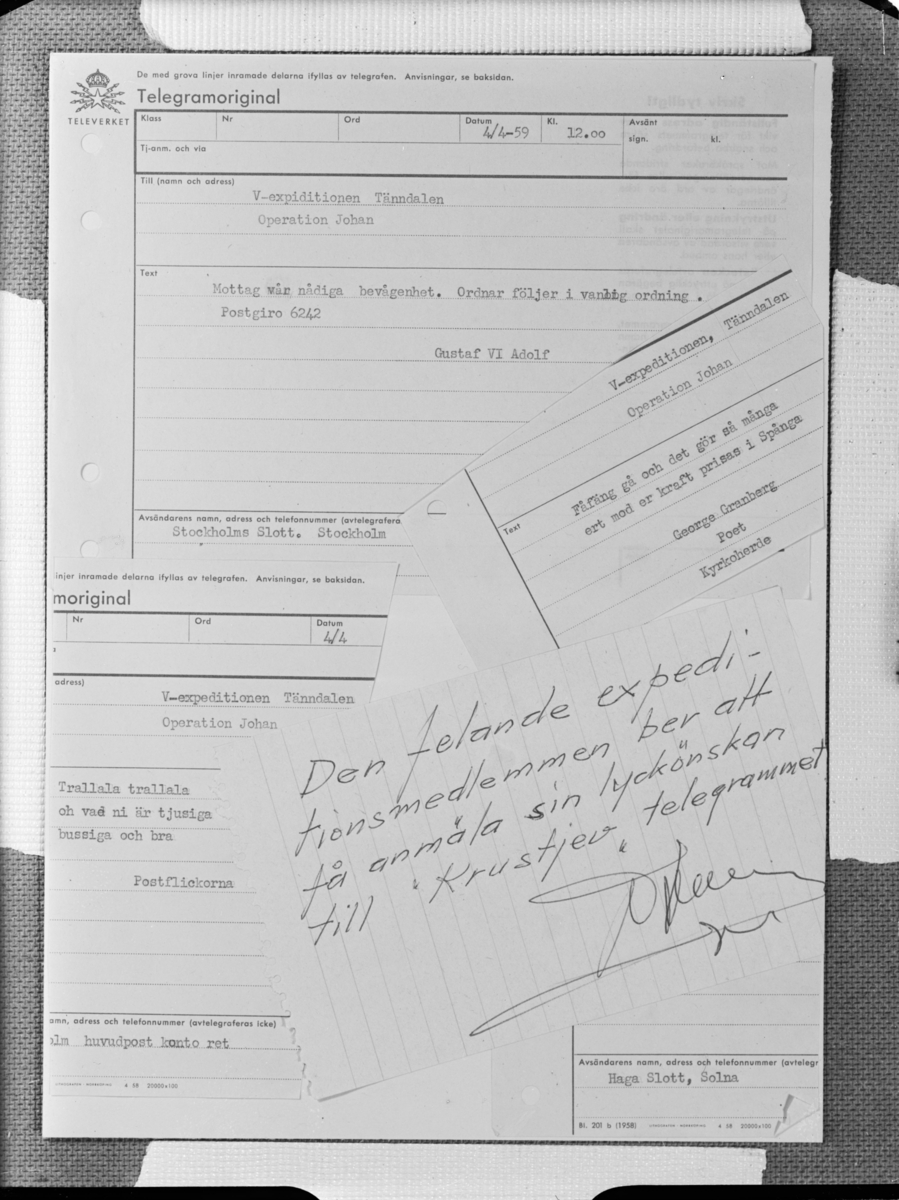 De med grova linjer inramade delarna ifyllas av telegrafen. Anvisningar, se baksidan.
Telegramoriginal
TELEVERKET
Klass Nr Ord Datum Kl. Avsänt
4/4-59 12.00 sign. kl.
Tj-anm. och via
Till (namn och adress)
V-expiditionen Tänndalen
Operation Johan
Text
Mottag vår nådiga bevågenhet. Ordnar följer i vanlig ordning .
Postgiro 6242
Gustaf VI Adolf
Avsändarens namn, adress och telefonnummer (avtelegrafera
Stockholms Slott. Stockholm
V-expeditionen, Tänndalen
Operation Johan
Text
Fåfäng gå och det gör så många
ert mod er kraft prisas i Spånga
George Granberg
Poet
Kyrkoherde
linjer inramade delarna ifyllas av telegrafen. Anvisningar, se baksidan.
moriginal
Nr Ord Datum
4/4
adress)
V-expeditionen Tänndalen
Operation Johan
Trallala trallala
oh vad ni är tjusiga
bussiga och bra
Postflickorna
amn, adress och telefonnummer (avtelegraferas icke)
olm huvudpost konto ret
4 58 20000x100
Den felande expedi-
tionsmedlemmen ber att
få anmäla sin lyckönskan
till "Krustjev" telegrammet
Avsändarens namn, adress och telefonnummer (avtelegr
Haga Slott, Solna
Bl. 201 b (1958) 4 58 20000x100